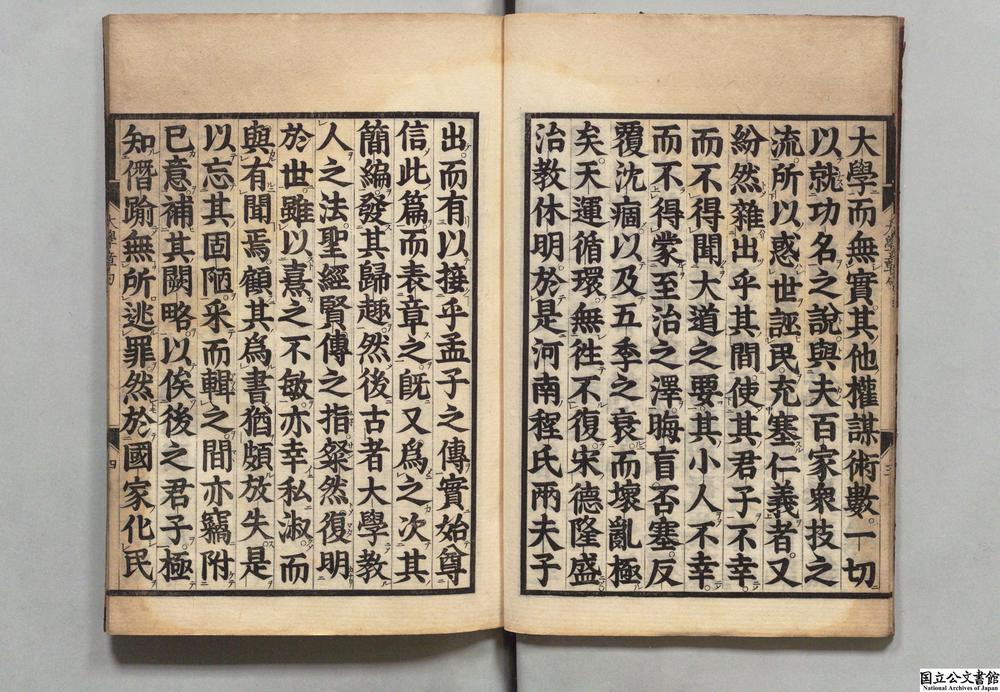 大學而無實。其他權謀術數。一切
以就功名之說。與夫百家衆技之
流。所以惑世誣民。充塞仁義者。又
紛然雜出乎其間。使其君子不幸。
而不得聞大道之要。其小人不幸。
而不得蒙至治之澤。晦盲否塞。反
覆沈痼。以及五季之衰。而壞亂極
矣。天運循環。無徃不復。宋德隆盛。
治教休明。於是河南程氏兩夫子
出。而有以接乎孟子之傳。實始尊
信此篇。而表章之。旣又爲之次其
簡編。發其歸趣。然後古者大學教
人之法。聖經賢傳之指。粲然復明
於世。雖以熹之不敏。亦幸私淑。而
與有聞焉。顧其爲書。猶頗放失。是
以忘其固陋。采而輯之。間亦竊附
已意。補其闕略。以俟後之君子。極
知僭踰無所逃罪。然於國家化民
三
四
国立公文書館
National Archives of Japan